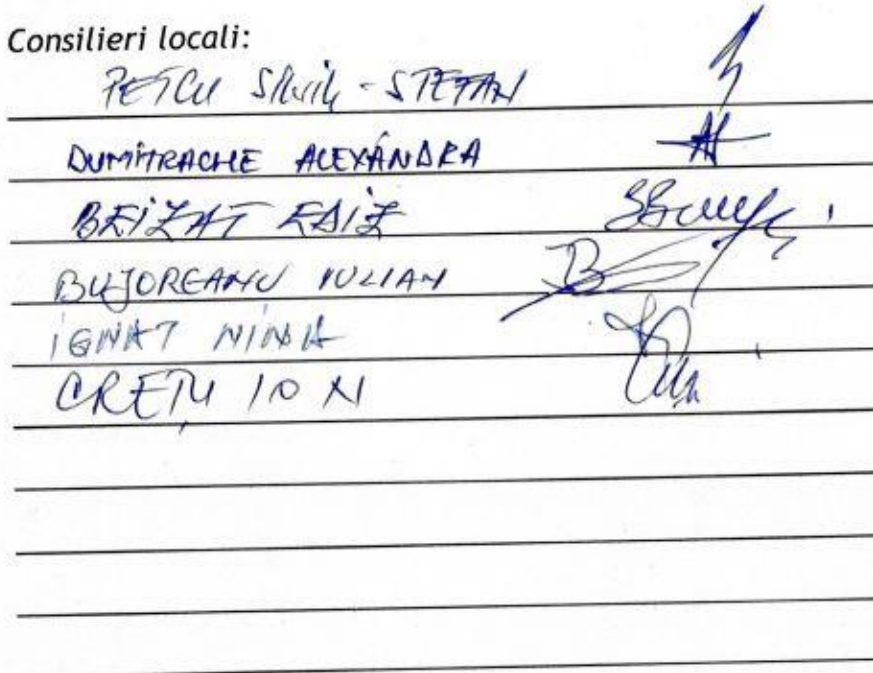 Consilieri locali:
PETCU SILVIU-STEFAN
DUMITRACHE ALEXANDRA
BEIZAT EDIZ
BUJOREANU IULIAN
IGNAT NINA
CREȚU ION